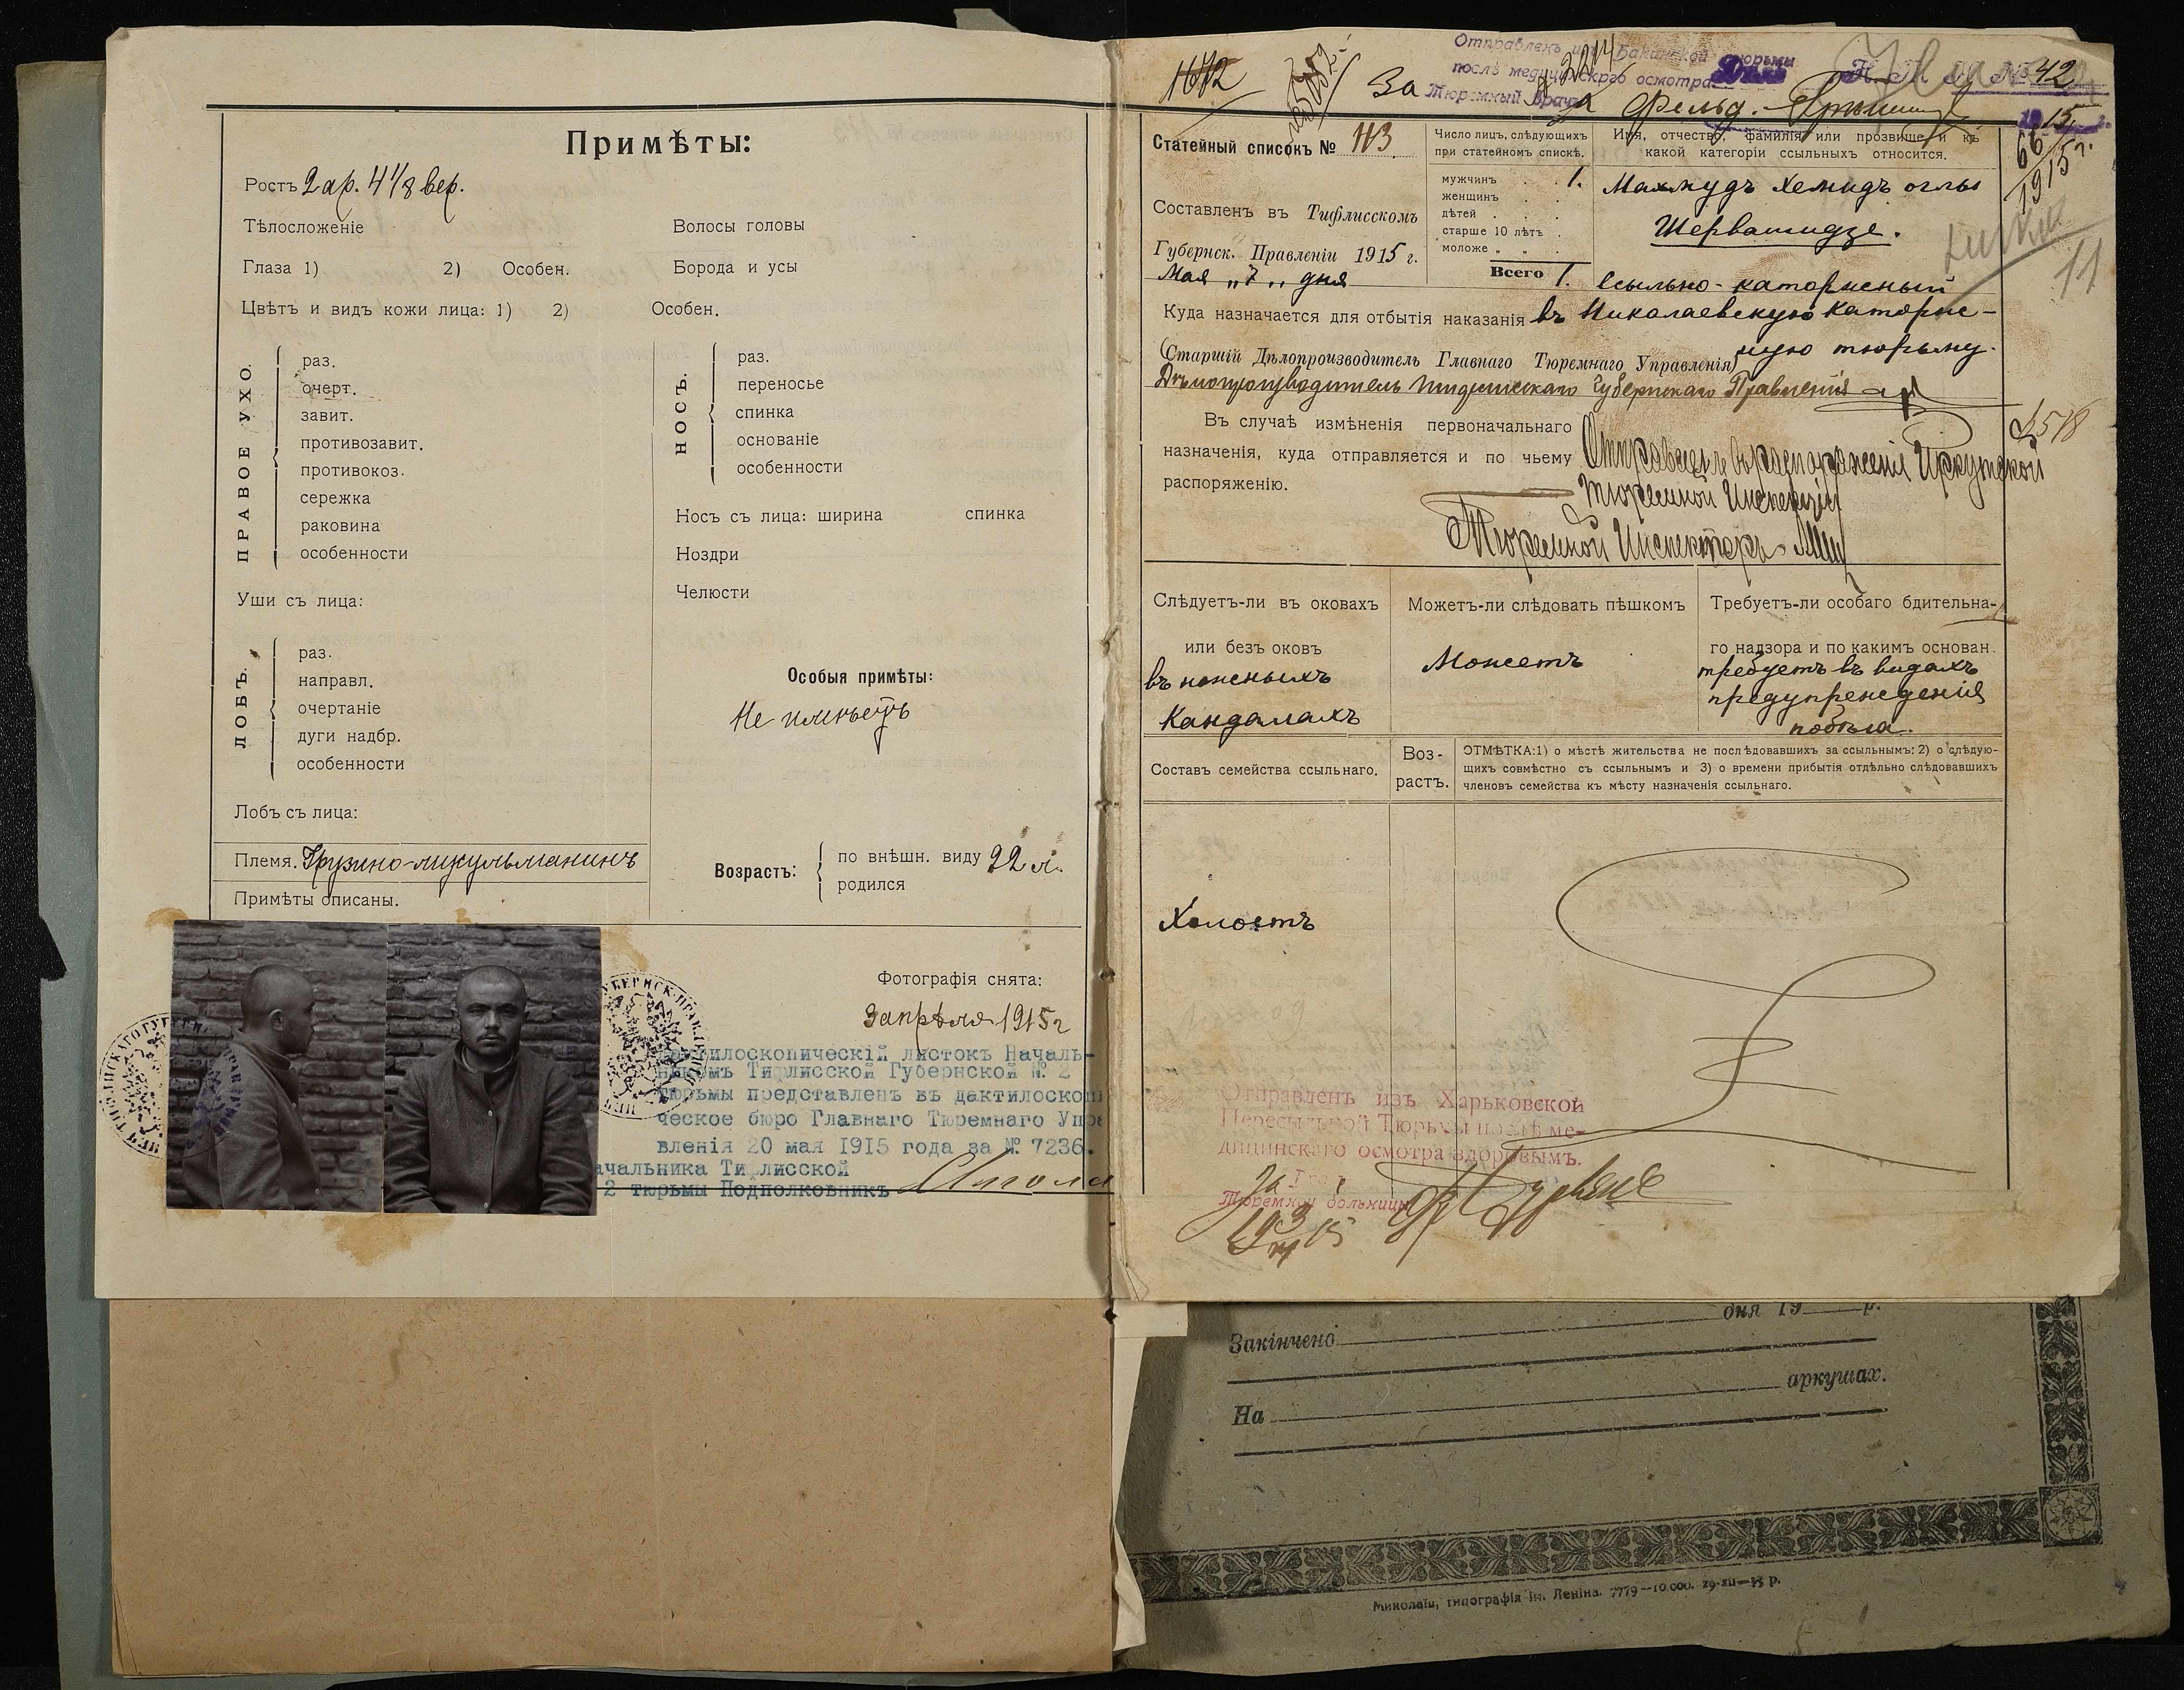 Примѣты:
Ростъ 2 ар. 4 1/8 вер.
Тѣлосложеніе
Волосы головы
Глаза 1) 2) Особен.
Борода и усы
Цвѣтъ и видъ кожи лица: 1) 2) Особен.
ПРАВОЕ УХО.
раз.
очерт.
завит.
противозавит.
противокоз.
сережка
раковина
особенности
НОСЪ.
раз.
переносье
спинка
основаніе
особенности
Носъ съ лица: ширина спинка
Ноздри
Челюсти
Уши съ лица:
ЛОБЪ.
раз.
направл.
очертаніе
дуги надбр.
особенности
Лобъ съ лица:
Особыя примѣты:
Не имѣетъ
Племя. Грузино-мусульманинъ
Примѣты описаны.
Возрастъ:
по внѣшн. виду 22 л.
родился
Фотографія снята:
3 апрѣля 1915 г
дактилоскопическій листокъ Началь-
никомъ Тифлисской Губернской № 2
тюрьмы представленъ въ дактилоскопи
ческое бюро Главнаго Тюремнаго Упра
вленія 20 мая 1915 года за № 7236.
ачальника Тифлисской
2 тюрьмы Подполковникъ
1672
Отправленъ изъ Бакинской тюрьмы
послѣ медицинскаго осмотра
За Тюремный Врачъ
фельд.
Дѣло
№ 42
1915 г.
66
1915 г.
11
Статейный списокъ № 113
Составленъ въ Тифлисскомъ
Губернск. Правленіи 1915 г.
Мая „7„ дня
Число лицъ, слѣдующихъ
при статейномъ спискѣ.
мужчинъ . . 1.
женщинъ . .
дѣтей . . .
старше 10 лѣтъ .
моложе „ „ .
Всего 1.
Имя, отчество, фамилія или прозвище и къ
какой категоріи ссыльныхъ относится.
Махмудъ Хемидъ оглы
Шервашидзе.
Ссыльно-каторжный
Куда назначается для отбытія наказанія въ Николаевскую каторж-
ную тюрьму.
(Старшій Дѣлопроизводитель Главнаго Тюремнаго Управленія)
Дѣлопроизводитель Тифлисскаго Губернскаго Правленія
Въ случаѣ измѣненія первоначальнаго
назначенія, куда отправляется и по чьему
распоряженію.
Отправленъ въ распоряженіе Иркутской
Тюремной Инспекціи
Тюремной Инспекторъ
Слѣдуетъ-ли въ оковахъ
или безъ оковъ
въ ножныхъ
кандалахъ
Можетъ-ли слѣдовать пѣшкомъ
Можетъ
Требуетъ-ли особаго бдительна-
го надзора и по какимъ основан.
требуетъ въ видахъ
предупрежденія
побѣга.
Составъ семейства ссыльнаго.
Воз-
растъ.
ОТМѢТКА: 1) о мѣстѣ жительства не послѣдовавшихъ за ссыльнымъ: 2) о слѣдую-
щихъ совмѣстно съ ссыльнымъ и 3) о времени прибытія отдѣльно слѣдовавшихъ
членовъ семейства къ мѣсту назначенія ссыльнаго.
Холостъ
Отправленъ изъ Харьковской
Пересыльной Тюрьмы послѣ ме-
дицинскаго осмотра здоровымъ.
Тюремной больницы
дня 19 р.
Закінчено
аркушах.
На
Миколаїв, типографія ім. Леніна. 7779—10.000.